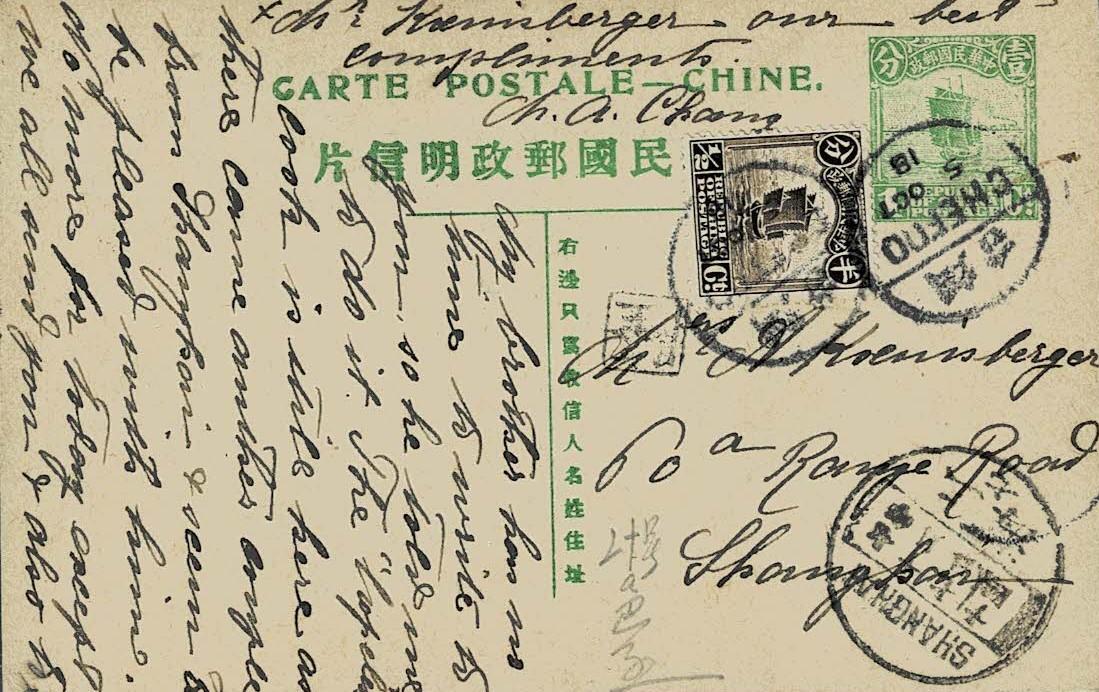 My brother has no
time to write to
you so he told me
to do it. The
cook is still here as
there came another couple
from Shanghai & seem to
be pleased with him.
No more for today except
we all send you & also to
Mr Koenisberger our best
compliments.
Ch. A. Chang
CARTE POSTALE—CHINE.
片信明政郵國民
右邊只寫收信人名姓住址
壹分
中華民國郵政
1
半分
REPUBLIC
OF CHINA
POSTAGE
1/2 Ct
CHEFOO
5
OCT
Mrs A Koenisberger
60a Range Road
Shanghai
SHANGHAI